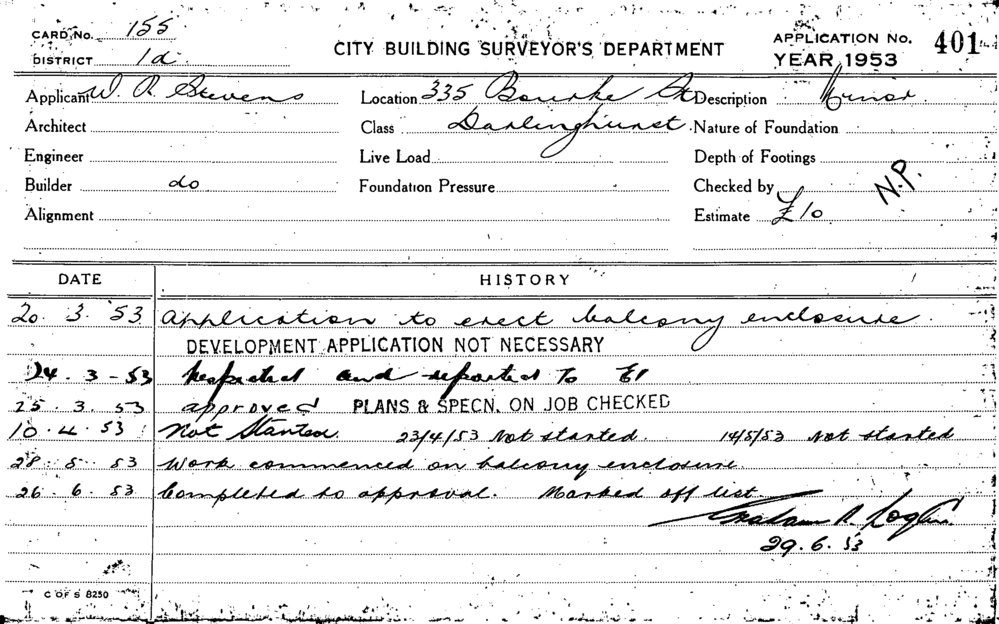 CARD No. 155
DISTRICT 1d.
CITY BUILDING SURVEYOR'S DEPARTMENT
APPLICATION No. 401
YEAR 1953
Applicant W. R. Stevens Location 335 Bourke St Description Minor.
Architect Class Darlinghurst. Nature of Foundation
Engineer Live Load Depth of Footings
Builder do Foundation Pressure Checked by N.P.
Alignment Estimate £10
DATE HISTORY
20. 3. 53 Application to erect balcony enclosure.
DEVELOPMENT APPLICATION NOT NECESSARY
24. 3 - 53 Inspected and reported to
25. 3. 53 approved PLANS & SPECN. ON JOB CHECKED
10. 4. 53 Not Started. 23/4/53 Not started. 14/5/53 Not started
28. 5. 53 Work commenced on balcony enclosure.
26. 6. 53 Completed to approval. Marked off list.
Graham R.
29. 6. 53
C OF S 8250